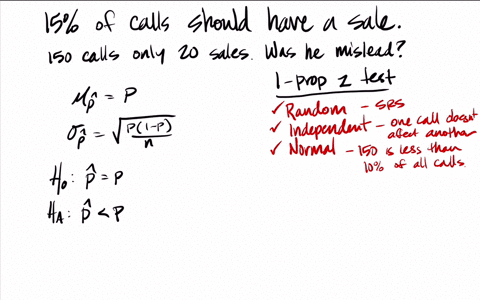 15% of calls should have a sale.
150 calls only 20 sales. Was he mislead?
1-prop z test
✓ Random - SRS
✓ Independent - one call doesn't
affect another
✓ Normal - 150 is less than
10% of all calls
μp̂ = P
σp̂ = √(P(1-P)/n)
H₀: p̂ = p
HA: p̂ < p